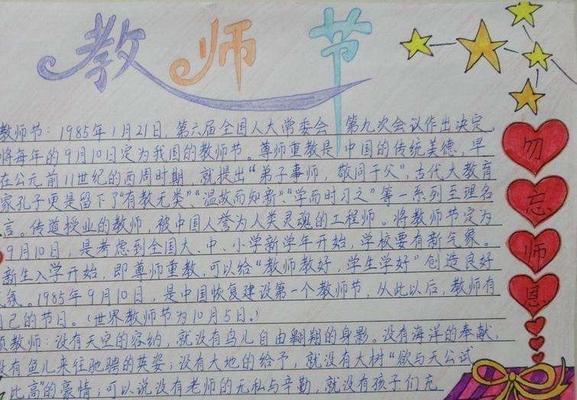 教师节
教师节：1985年1月21日，第六届全国人大常委会 第九次会议作出决定，
将每年的9月10日定为我国的教师节。尊师重教是中国的传统美德，早
在公元前11世纪的西周时期，就提出“弟子事师，敬同于父”，古代大教育
家孔子更是留下了“有教无类”“温故而知新”“学而时习之”等一系列至理名
言。传道授业的教师，被中国人誉为人类灵魂的工程师。将教师节定为
9月10日，是考虑到全国大、中、小学新学年开始，学校要有新气象。
新生入学开始，即尊师重教，可以给“教师教好，学生学好”创造良好
气氛。1985年9月10日，是中国恢复建设第一个教师节，从此以后，教师有
自己的节日。（世界教师节为10月5日。）
教师：没有天空的容纳，就没有鸟儿自由翱翔的身影。没有海洋的奉献，
没有鱼儿来往驰骋的英姿；没有大地的给予，就没有大树“欲与天公试
比高”的豪情；可以说没有老师的无私与辛勤，就没有孩子们充
勿
忘
师
恩